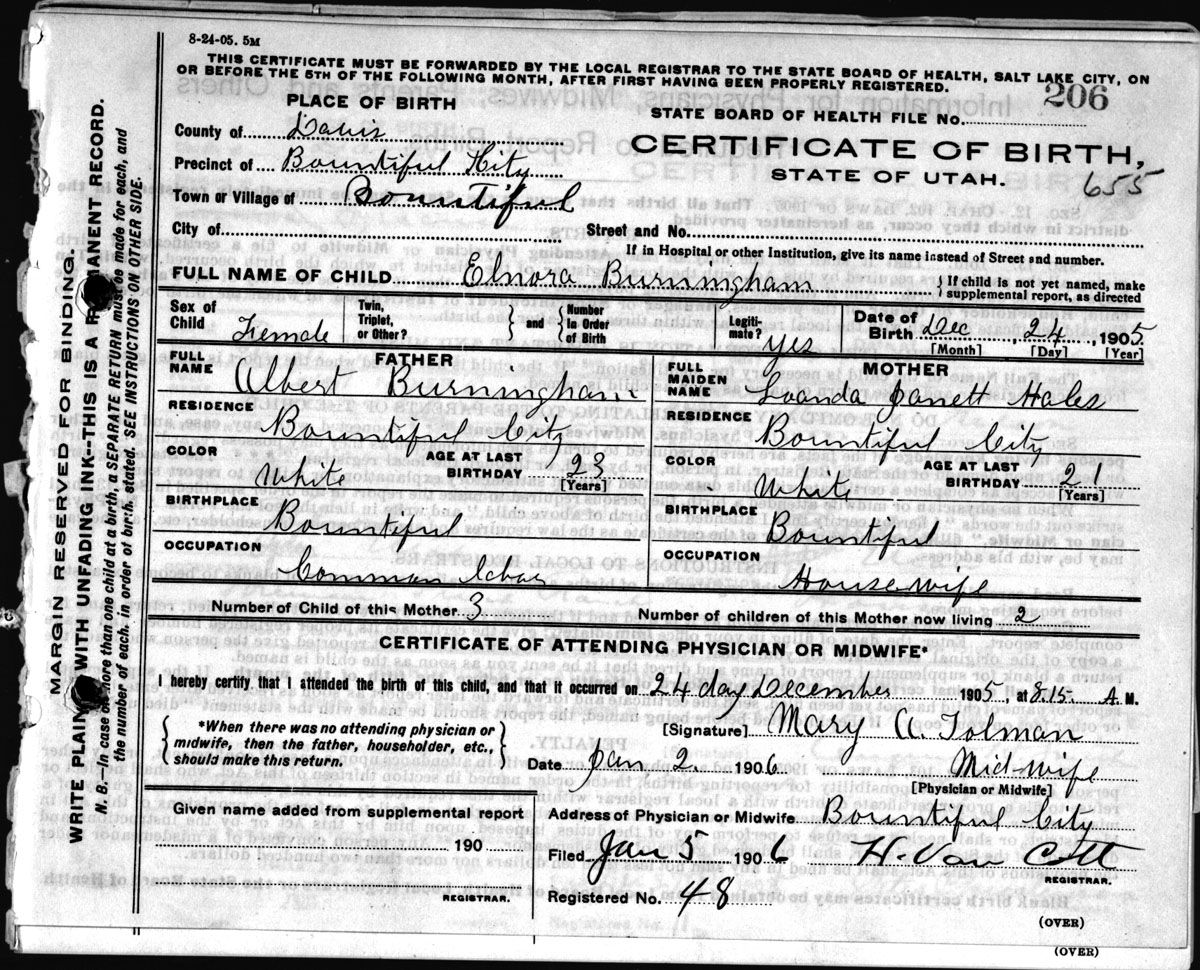 8-24-05. 5M
THIS CERTIFICATE MUST BE FORWARDED BY THE LOCAL REGISTRAR TO THE STATE BOARD OF HEALTH, SALT LAKE CITY, ON
OR BEFORE THE 5TH OF THE FOLLOWING MONTH, AFTER FIRST HAVING BEEN PROPERLY REGISTERED.
206
STATE BOARD OF HEALTH FILE No.
PLACE OF BIRTH
CERTIFICATE OF BIRTH,
STATE OF UTAH.
655
County of Davis
Precinct of Bountiful City
Town or Village of Bountiful
City of Street and No.
If in Hospital or other Institution, give its name instead of Street and number.
FULL NAME OF CHILD Elnora Burningham { If child is not yet named, make supplemental report, as directed
Sex of Child Female Twin, Triplet, or Other? and Number in Order of Birth Legitimate? yes Date of Birth Dec 24 1905
[Month] [Day] [Year]
FATHER
FULL NAME Albert Burningham
RESIDENCE Bountiful City
COLOR White AGE AT LAST BIRTHDAY 23
[Years]
BIRTHPLACE Bountiful
OCCUPATION Common labor
MOTHER
FULL MAIDEN NAME Loanda Janett Hales
RESIDENCE Bountiful City
COLOR White AGE AT LAST BIRTHDAY 21
[Years]
BIRTHPLACE Bountiful
OCCUPATION Housewife
Number of Child of this Mother 3 Number of children of this Mother now living 2
CERTIFICATE OF ATTENDING PHYSICIAN OR MIDWIFE*
I hereby certify that I attended the birth of this child, and that it occurred on 24 day December 1905 at 8.15 A. M.
*When there was no attending physician or
midwife, then the father, householder, etc.,
should make this return.
[Signature] Mary A. Tolman
Date Jan 2. 1906 Mid-wife
[Physician or Midwife]
Given name added from supplemental report
190
REGISTRAR.
Address of Physician or Midwife Bountiful City
Filed Jan 5 1906 H. Van Cott
REGISTRAR.
Registered No. 48
(OVER)
(OVER)
MARGIN RESERVED FOR BINDING
WRITE PLAINLY WITH UNFADING INK—THIS IS A PERMANENT RECORD.
N. B.—In case of more than one child at a birth, a SEPARATE RETURN must be made for each, and
the number of each, in order of birth, stated. SEE INSTRUCTIONS ON OTHER SIDE.